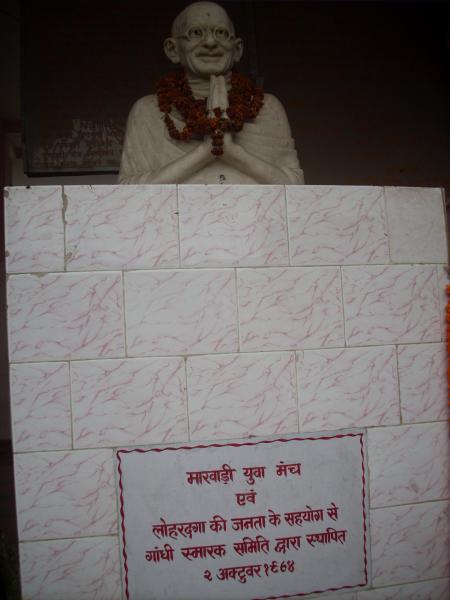 मारवाड़ी युवा मंच
एवं
लोहरदगा की जनता के सहयोग से
गांधी स्मारक समिति द्वारा स्थापित
२ अक्टुवर १९८४